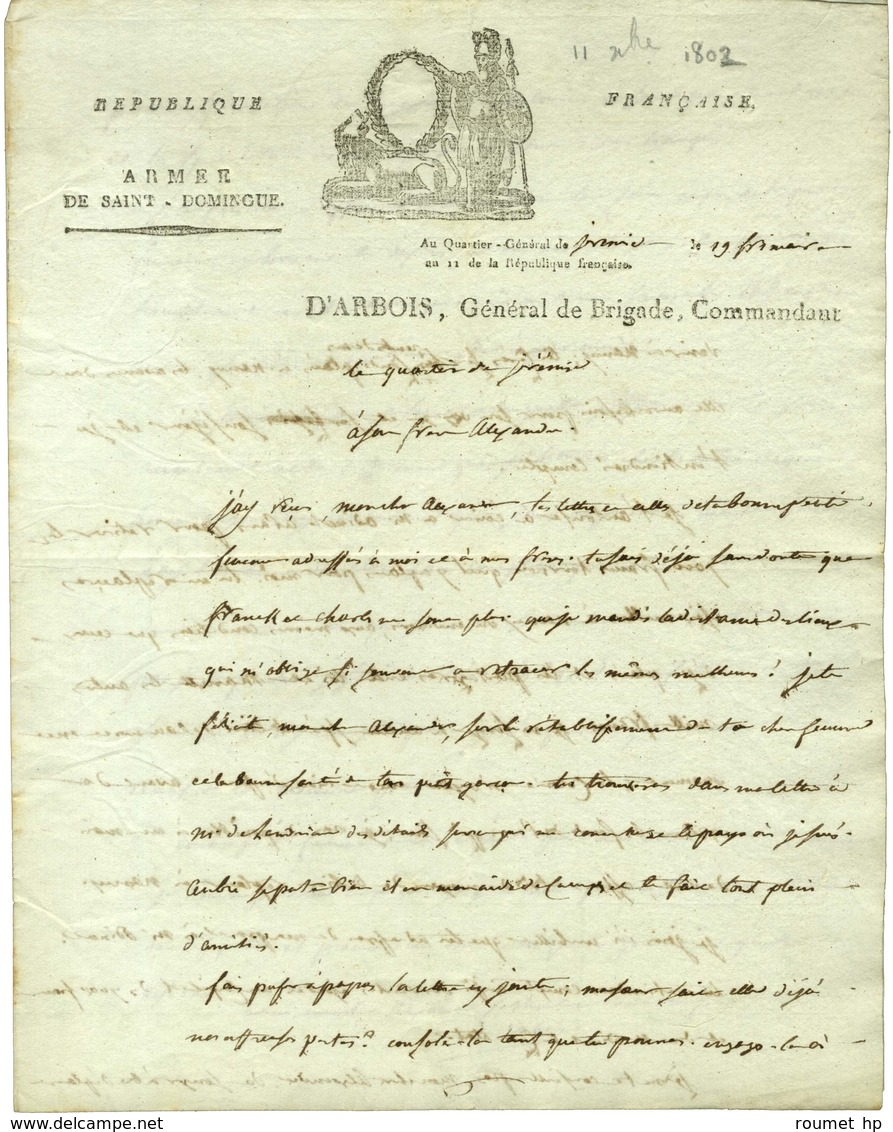 11 xbre 1802
REPUBLIQUE FRANÇAISE,
ARMÉE
DE SAINT-DOMINGUE.
Au Quartier-Général de jérémie le 19 frimaire
an 11 de la République française.
D'ARBOIS, Général de Brigade, Commandant
le quartier de jérémie
à son frere Alexandre.
j'ay reçu, mon cher Alexandre, tes lettres et celles de ta bonne petite
femme adressées à moi et à mes freres. tu sais déja sans doute que
franck et charles ne sont plus. que je maudis la distance des lieux
qui m'oblige si souvent a retracer les mêmes malheurs! je te
félicite, mon cher Alexandre, sur le rétablissement de ta chere femme
et la bonne santé de ton petit garçon. tu trouveras dans ma lettre à
mr de des détails sur ce qui me concerne et le pays où je suis.
Aubié se porte bien il est mon aide de camp et te fait tout plein
d'amitiés.
fais passer à papa la lettre cy jointe; ma soeur sait elle déjà
nos affreuses pertes? console-la tant que tu pourras. engage-la à
roumet hp